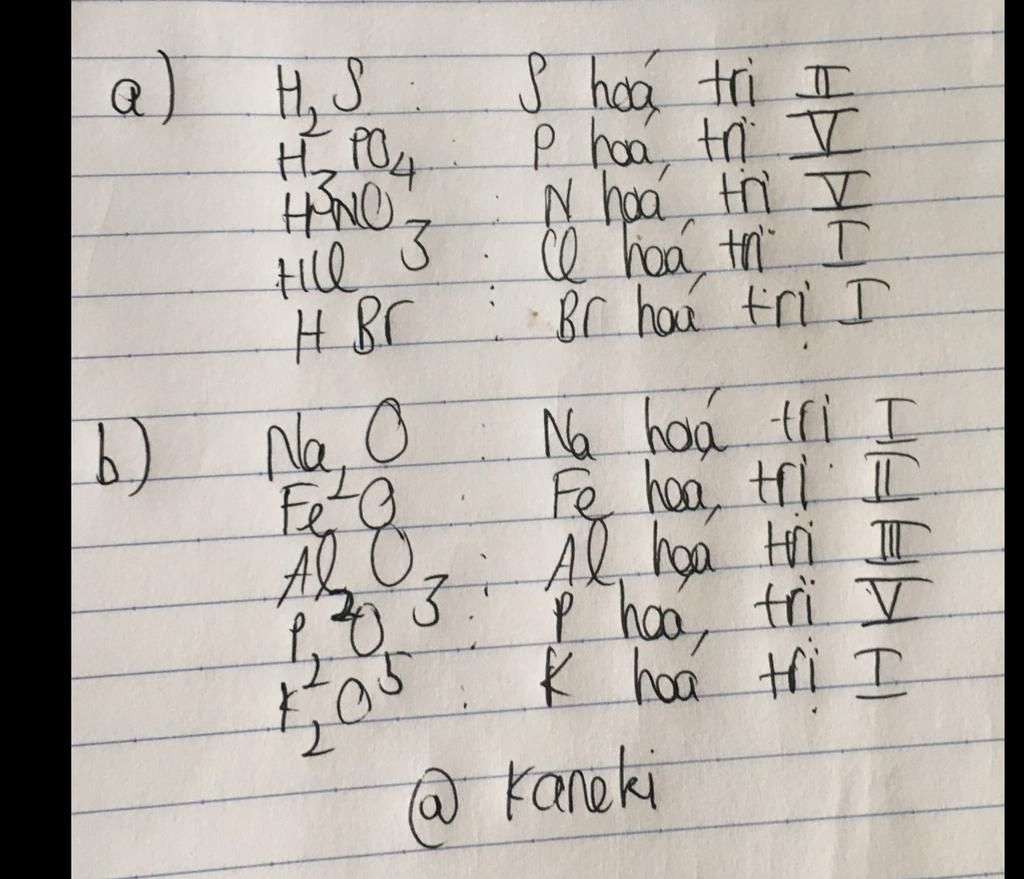 a) H₂S : S hoá trị II
H₃PO₄ : P hoá trị V
HNO₃ : N hoá trị V
HCl : Cl hoá trị I
HBr : Br hoá trị I
b) Na₂O : Na hoá trị I
FeO : Fe hoá trị II
Al₂O₃ : Al hoá trị III
P₂O₅ : P hoá trị V
K₂O : K hoá trị I
@ Kaneki